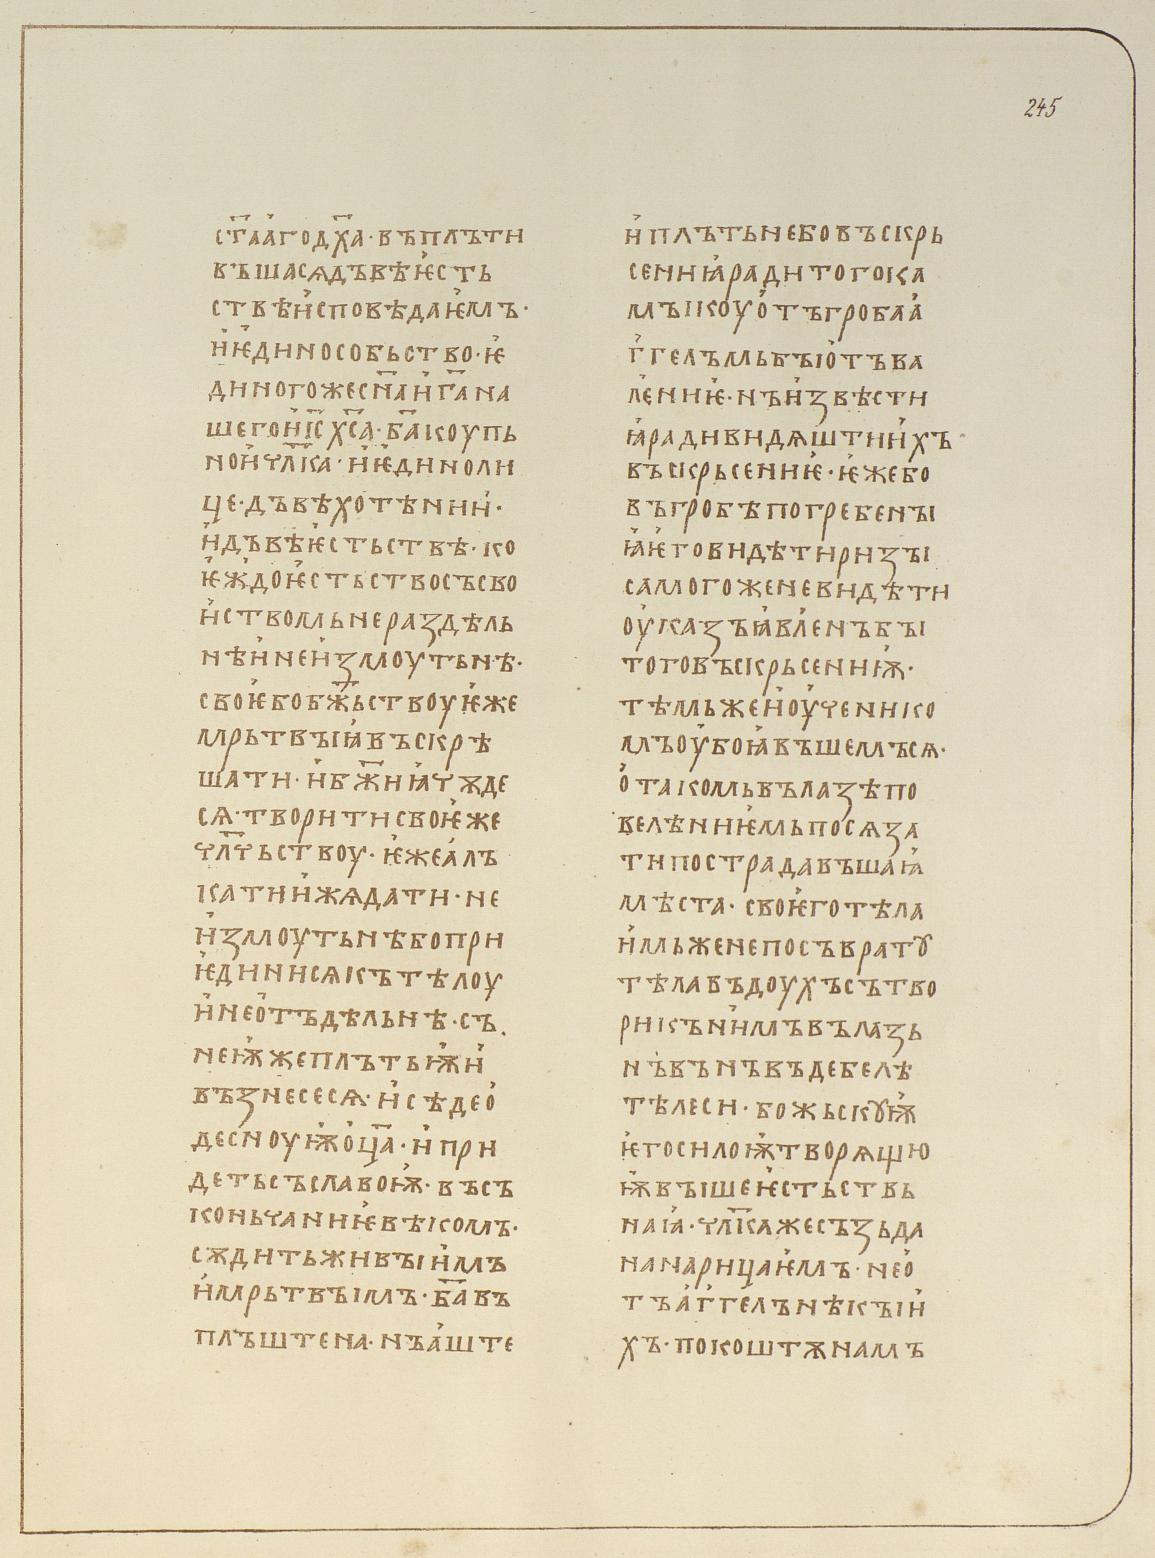 245
ст҃аагодх҃а· въплъти
въшасѧдъвѣѥсть
ствѣисповѣдаѥмъ·
иѥдинособьство· ѥ
диногожесн҃аиг҃ана
шегоиі҃сх҃са· б҃акоупь
ноичл҃ка· иѥдиноли
це· дъвѣхотѣнии·
идъвѣѥстьствѣ· ко
ѥждоѥстьствосъсво
истvомьнераздѣль
нѣинеизмоутьнѣ·
своѥбобж҃ьствоуѥже
мрьтвыꙗвъскрѣ
шати· ибж҃ниꙗчѫде
сѧ· творитисвоѥже
чл҃чьствоу· ѥжеалъ
катиижѧдати· не
измоутьнѣбопри
ѥдинисѧкътѣлоу
инеотъдѣльнѣ· съ
неѭжеплътьѭи
възнесесѧ· исѣдео
десноуѭоц҃а· ипри
детьсъславоѭ· въсъ
коньчаниѥвѣкомъ·
сѫдитьживыимъ
имрьтвыимъ· б҃авъ
плъштена· нъаште
иплътьнебовъскрь
сениꙗрадитогока
мыкоуотъгробаа
г҃гелъмьбыіотъва
лениѥ· нъизвѣсти
ꙗрадивидѧштиихъ
въскрьсениѥ· ѥжебо
въгробѣпогребены
ꙗѥговидѣтиризы
самогоженевидѣти
оуказъꙗвленъбы
тоговъскрьсениѭ·
тѣмьжеиоученико
мъоубоꙗвъшемъсѧ·
отакомьвълазѣпо
велѣниѥмьпосѧза
типострадавъшаꙗ
мѣста· своѥготѣла
имьженепосъвратꙋ
тѣлавъдоухъсътво
рикънимъвълазь
нъвънъвъдебелѣ
тѣлеси· божьскꙋѭ
ѥгосилоѭтворѧщю
ѭвышеѥстьствь
наꙗ· чл҃кѧжесъзьда
нанарицаѥмъ· нео
тъаг҃гелънѣкыи
хъ· покоштѫнамъ